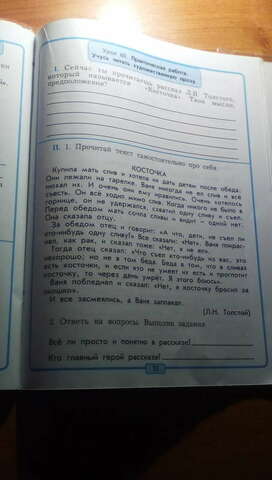 Урок 40. Практическая работа.
Учусь читать художественную прозу
I. Сейчас ты прочитаешь рассказ Л.Н. Толстого,
который называется «Косточка». Твои мысли,
предположения?
II. 1. Прочитай текст самостоятельно про себя.
КОСТОЧКА
Купила мать слив и хотела их дать детям после обеда.
Они лежали на тарелке. Ваня никогда не ел слив и всё
нюхал их. И очень они ему нравились. Очень хотелось
съесть. Он всё ходил мимо слив. Когда никого не было в
горнице, он не удержался, схватил одну сливу и съел.
Перед обедом мать сочла сливы и видит – одной нет.
Она сказала отцу.
За обедом отец и говорит: «А что, дети, не съел ли
кто-нибудь одну сливу?» Все сказали: «Нет». Ваня покрас-
нел, как рак, и сказал тоже: «Нет, я не ел».
Тогда отец сказал: «Что съел кто-нибудь из вас, это
нехорошо; но не в том беда. Беда в том, что в сливах
есть косточки, и если кто не умеет их есть и проглотит
косточку, то через день умрёт. Я этого боюсь».
Ваня побледнел и сказал: «Нет, я косточку бросил за
окошко».
И все засмеялись, а Ваня заплакал.
(Л.Н. Толстой)
2. Ответь на вопросы. Выполни задания.
Всё ли просто и понятно в рассказе?
Кто главный герой рассказа?